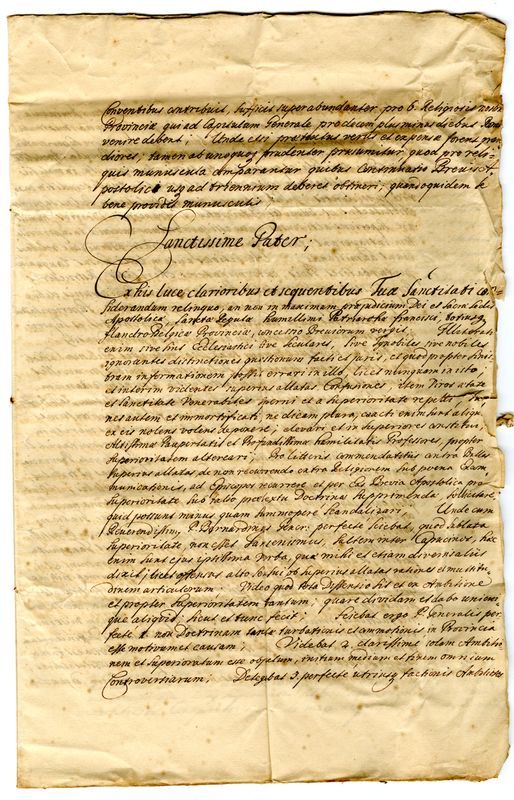 Conventibus contribuit, sufficit superabundanter pro 6 Religiosis nostræ
Provinciæ qui ad Capitulum Generale pro decem plus minus diebus Con
venire debent; Unde etsi prætextus veris et expensæ forent gran
diores, tamen ab unoquoq prudenter præsumitur quod pro reli
quis munuscula comparantur quibus Continuatio Brevis A
postolici usq ad triennium deberet obtineri, quandoquidem
bene providis munusculis;
Sanctissime Pater;
Ex his luce clarioribus et sequentibus Tuæ Sanctitati con
siderandum relinquo, an non in maximum præjudicium Dei et Sacræ Sedis
Apostolicæ, sanctæ Regulæ humillimi Patriarchæ Francisci, totiusq
Flandro-Belgicæ Provinciæ, concessio Breviorum vergit.
enim sive sint Ecclesiastici sive seculares, sive ignobiles sive nobiles
ignorantes distinctiones quæstionum facti et juris, et quod propter sinis
tram informationem possit errari in illo, licet nunquam in isto;
et interim videntes superius allatas Confusiones, item Viros ætate
et Sanctitate Venerabiles sperni et a superioritate repelli; Juve
nes autem et immortificati, ne dicam plura, coacti enim sunt aliqui
ex eis nolens volens deponere; elevari et in superiores constitui,
Altissimæ Paupertatis et Profundissimæ humilitatis Professores, propter
Superioritatem altercari; Pro litteris commendatitiis contra Bullas
superius allatas de non recurrendo extra Religionem sub poena Exam
municationis, ad Episcopos recurrere et per ea Brevia Apostolica pro
Superioritate sub falso prætextu Doctrinæ supprimendæ sollicitare,
quid possunt minus quam summopere scandalizari; Unde cum
Reverendissimus P. Bernardinus Gener: perfecte sciebat, quod ablata
superioritate, non esset Jansenismus, saltem inter Capucinos, hæc
enim sunt ejus ipsissima verba, quæ mihi et etiam diversis aliis
dixit, licet offensus alio scripsi ob superius allatas rationes et multitu
dinem articulorum Video quod tota Dissensio sit ex Ambitione
et propter Superioritatem tantum; quare dividam et dabo unicui
que aliquid, sicut et tunc fecit; Sciebat ergo P. Generalis per
fecte 1. non Doctrinam tantæ turbationis et commotionis in Provincia
esse motivam et causam; Videbat 2. clarissime solam Ambitio
nem et Superioratum esse originem, initium medium et finem omnium
Controversiarum; Detegebat 3. perfecte utriusq factionis Ambitiones